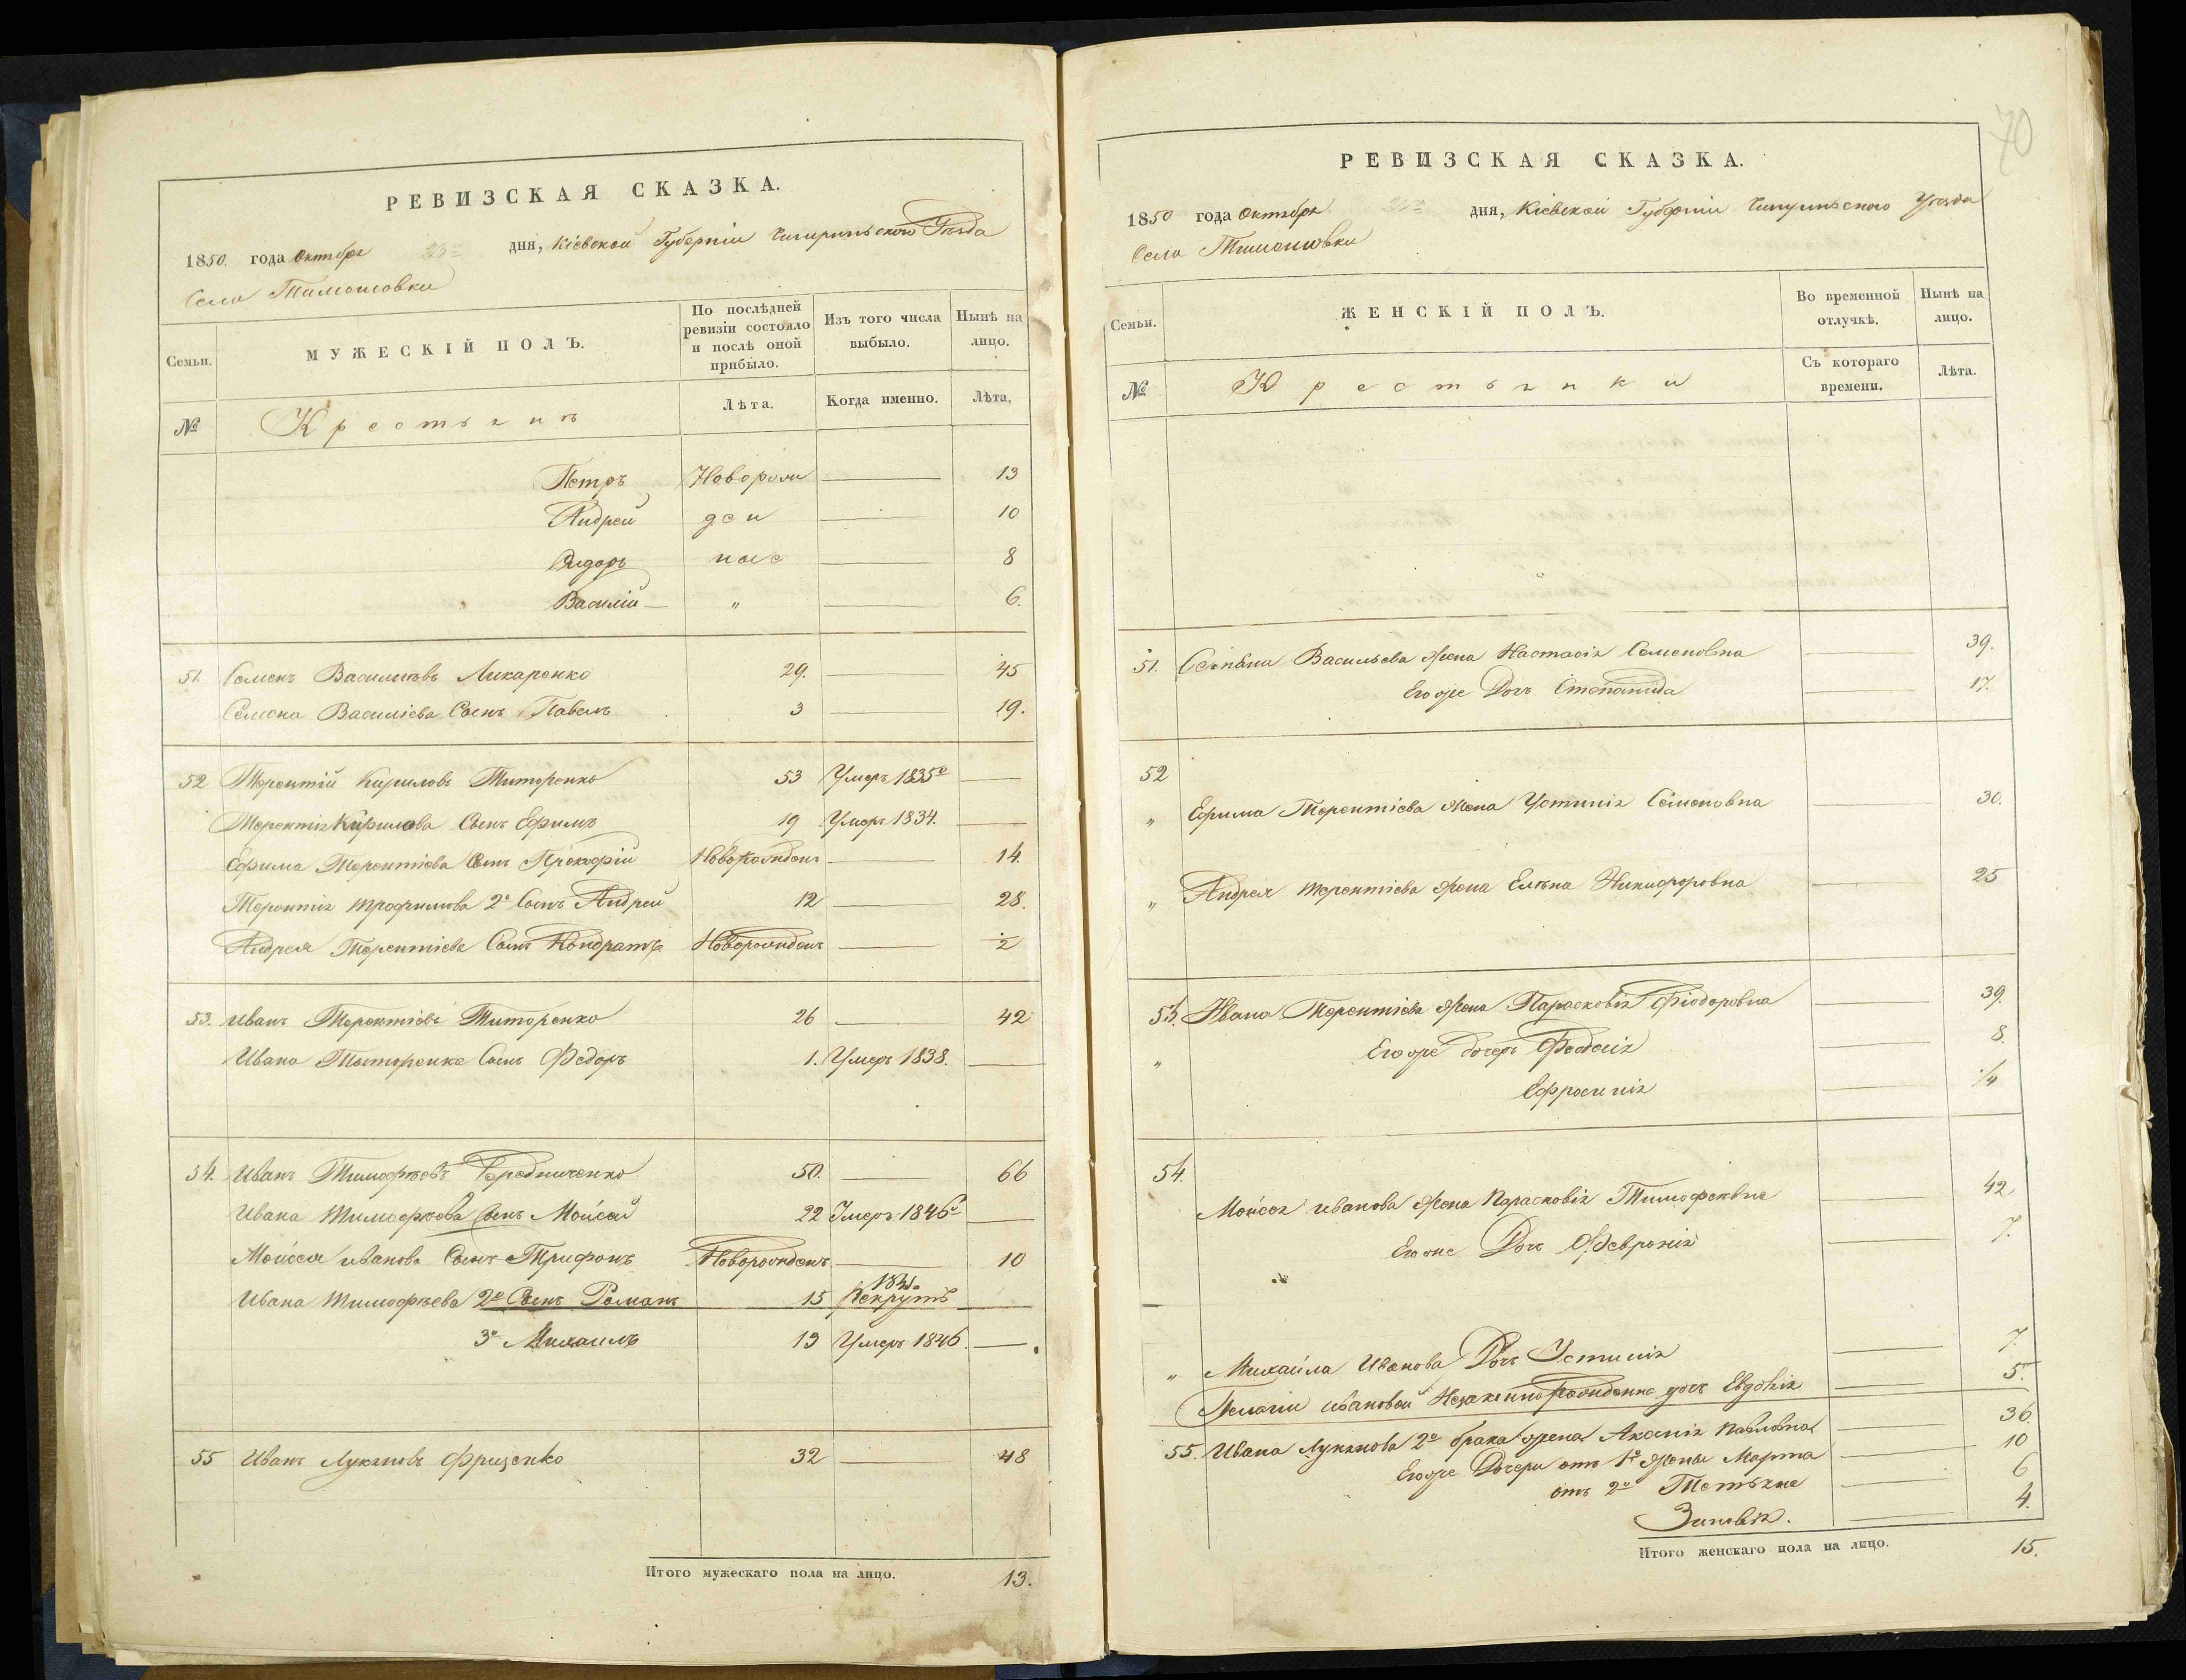 РЕВИЗСКАЯ СКАЗКА.
1850. года Октября 25го дня, Кіевской Губерніи Чигиринского Уѣзда
Села Тимошовки
Семьи.
МУЖЕСКІЙ ПОЛЪ.
По послѣдней ревизіи состояло и послѣ оной прибыло.
Изъ того числа выбыло.
Нынѣ на лицо.
№
Крестьянъ
Лѣта.
Когда именно.
Лѣта.
Петръ Новорож 13
Андрей ден 10
Сидоръ ные 8
Василій — " 6.
51. Семенъ Васильевъ Лихаренко 29. 45
Семена Василіева Сынъ Павелъ 3 19.
52 Терентій Кириловъ Титоренко 53 Умеръ 1835го
Терентія Кирилова Сынъ Ефимъ 19 Умеръ 1834.
Ефима Терентіева Сынъ Прокофій Новорожденъ 14.
Терентія Трофимова 2й Сынъ Андрей 12 28.
Андрея Терентіева Сынъ Кондратъ Новорожденъ 2
53. Иванъ Терентіевъ Титоренко 26 42
Ивана Титоренка Сынъ Федоръ 1. Умеръ 1838.
54. Иванъ Тимофѣевъ Бредниченко 50. 66
Ивана Тимофѣева Сынъ Мойсей 22 Умеръ 1846го
Мойсея Иванова Сынъ Трифонъ Новорожденъ 10
Ивана Тимофѣева 2й Сынъ Романъ 15 Рекрутъ 1841.
3й Михаилъ 13 Умеръ 1846.
55 Иванъ Лукяновъ Фриценко 32 48
Итого мужескаго пола на лицо. 13.
70
РЕВИЗСКАЯ СКАЗКА.
1850 года Октября 25го дня, Кіевской Губерніи Чигиринского Уѣзда
Села Тимошовки
Семьи.
ЖЕНСКІЙ ПОЛЪ.
Во временной отлучкѣ.
Нынѣ на лицо.
№
Крестьянки
Съ котораго времени.
Лѣта.
51. Васильева Жена Настасія Семеновна 39.
Его же Дочь Степанида 17.
52
" Ефима Терентіева Жена Устинія Семеновна 30.
" Андрея Терентіева Жена Елѣна Никифоровна 25
53. Ивана Терентіева Жена Парасковія Фіодоровна 39.
" Его же дочери Феодосія 8.
Ефросинія 1/4
54.
Мойсея Иванова Жена Парасковія Тимофеевна 42.
Его же Дочь Февронія 7.
" Михайла Иванова Дочь Устинія 7.
Пелагіи Ивановой Незаконнорожденна дочь Евдокія 5.
55. Ивана Лукянова 2го брака жена Аксенія Павловна 36.
Его же Дочери отъ 1й Жены Марта 10
отъ 2й Тетьяна 6
Зиновія. 4.
Итого женскаго пола на лицо. 15.